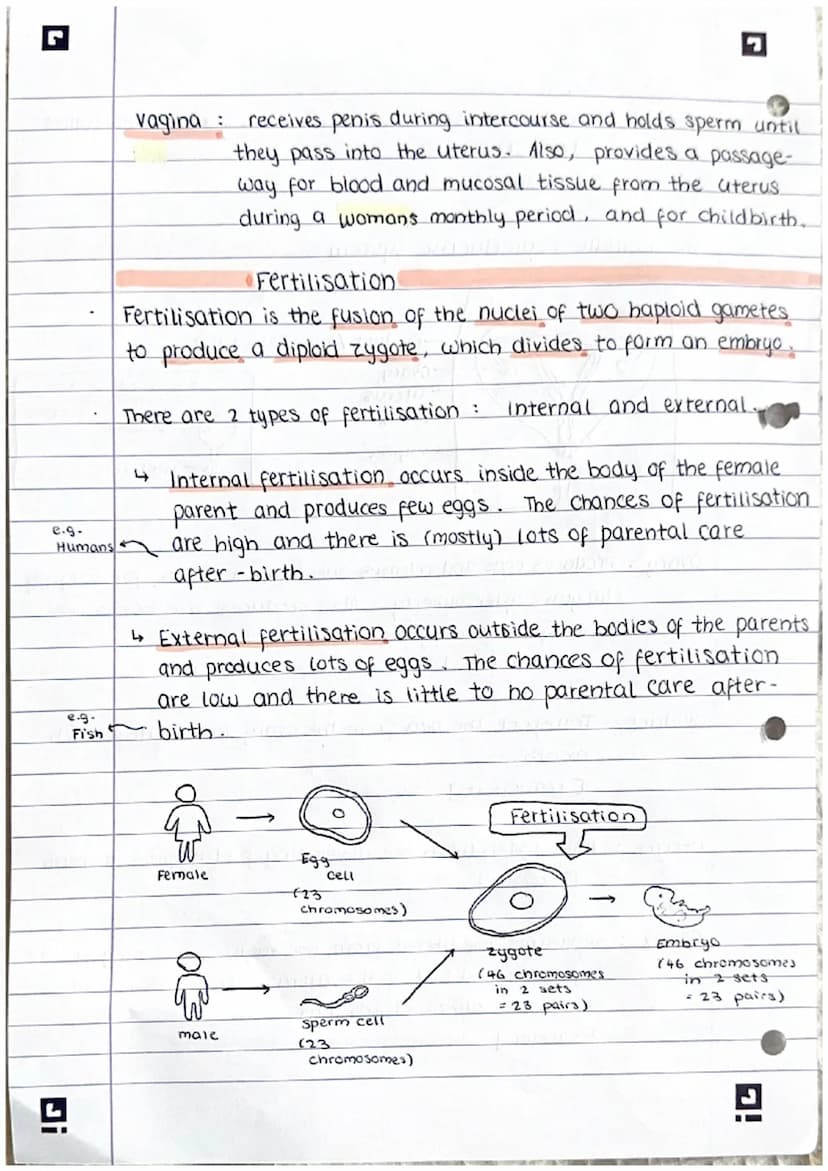 vagina : receives penis during intercourse and holds sperm until
they pass into the uterus. Also, provides a passage-
way for blood and mucosal tissue from the uterus
during a womans monthly period, and for childbirth.
Fertilisation
· Fertilisation is the fusion of the nuclei of two haploid gametes
to produce a diploid zygote, which divides to form an embryo.
· There are 2 types of fertilisation : Internal and external.
↳ Internal fertilisation occurs inside the body of the female
parent and produces few eggs. The chances of fertilisation
are high and there is (mostly) lots of parental care
after-birth.
e.g.
Humans
↳ External fertilisation occurs outside the bodies of the parents
and produces lots of eggs. The chances of fertilisation
are low and there is little to no parental care after-
birth.
e.g.
Fish
Female
Egg
cell
(23
chromosomes)
Fertilisation
male
sperm cell
(23
chromosomes)
zygote
(46 chromosomes
in 2 sets
= 23 pairs)
Embryo
(46 chromosomes
in 2 sets
= 23 pairs)